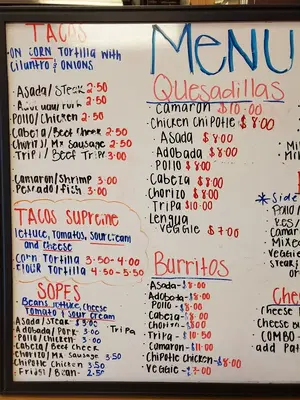 TACOS
ON CORN Tortilla with
Cilantro & ONIONS
Asada/Steak 2.50
Adobada/Pork
Pollo/Chicken 2.50
Cabeza/Beef Cheek 2.50
Chorizo/Mx Sausage 2.50
Tripi/Beef Tripe 3.00
Camaron/Shrimp 3.00
Pescado/fish 3.00
TACOS Supreme
lettuce, Tomatos, sour cream
and cheese
Corn Tortilla 3.50-4.00
FlOUR Tortilla 4.50-5.50
SOPES
Beans lettuce, Cheese
Tomato & sour cream
Asada/Steak $3.00
Adobado/Pork 3.00
Tripa
Pollo/Chicken 3.00
Cabeza/Beef Cheek
Chorizo/Mx Sausage 3.50
Chipotle Chicken 3.50
Frijol/Bean 2.50
MENU
Quesadillas
Camaron $10.00
Chicken Chipotle $8.00
Asada $8.00
Adobada $8.00
Pollo $8.00
Cabeza $8.00
Chorizo $8.00
Tripa $10.00
Lengua
Veggie $7.00
Burritos
Asada-$8.00
Adobada-$8.00
Pollo-$8.00
Cabeza-$8.00
Chorizo-$8.00
Tripa-$10.50
Camaron-$11.00
Chipotle Chicken-$8.00
Veggie-$3.00
*Side
Pollo
Camar
Mixe
Veggie
Steak
Che
cheese
Cheese
COMBO-
add Pa